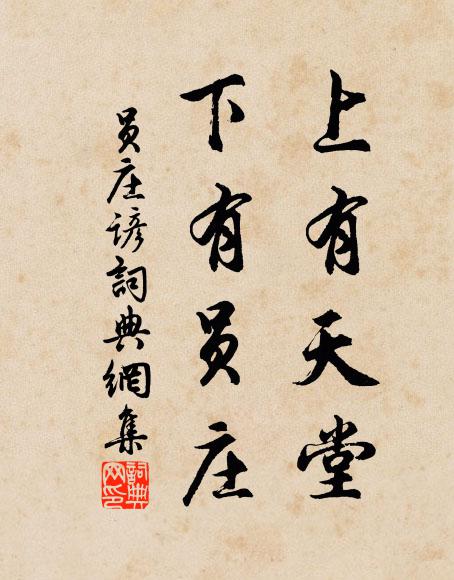 上有天堂
下有员庄
员庄谚詞典網集
詞典网印